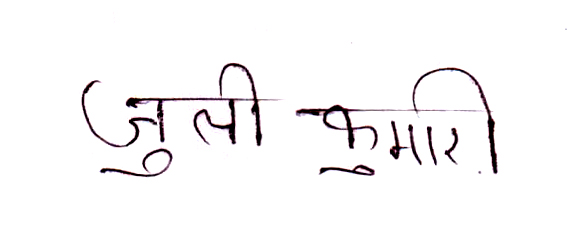 जुली कुमारी